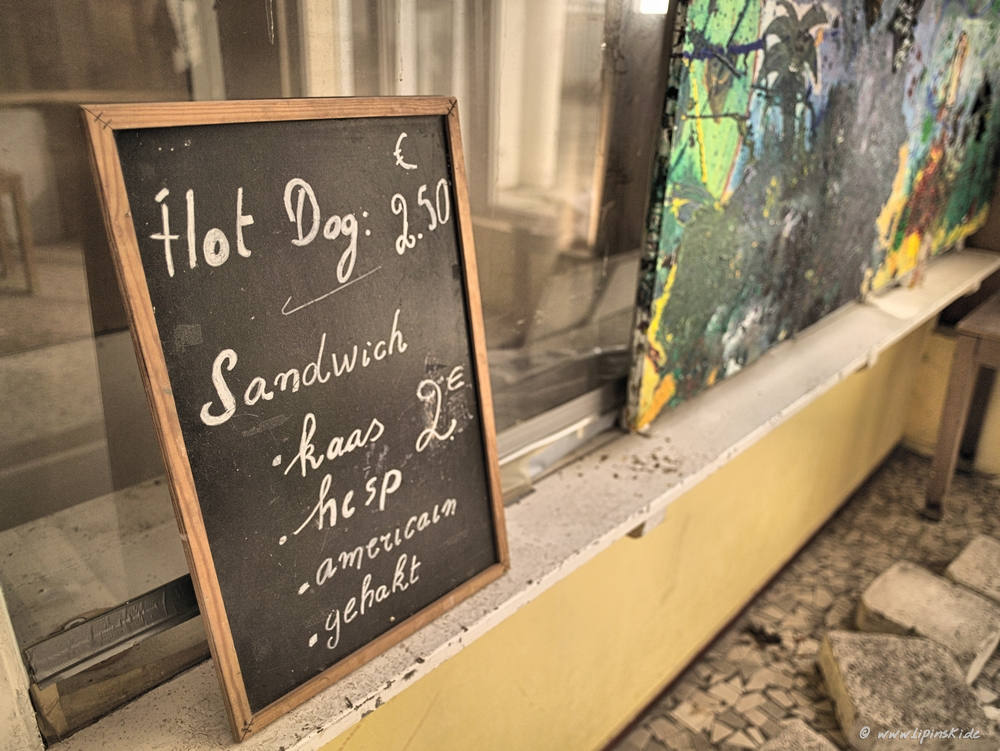 €
Hot Dog: 2.50
Sandwich
• kaas 2€
• hesp
• americain
• gehakt
© www.lipinski.de